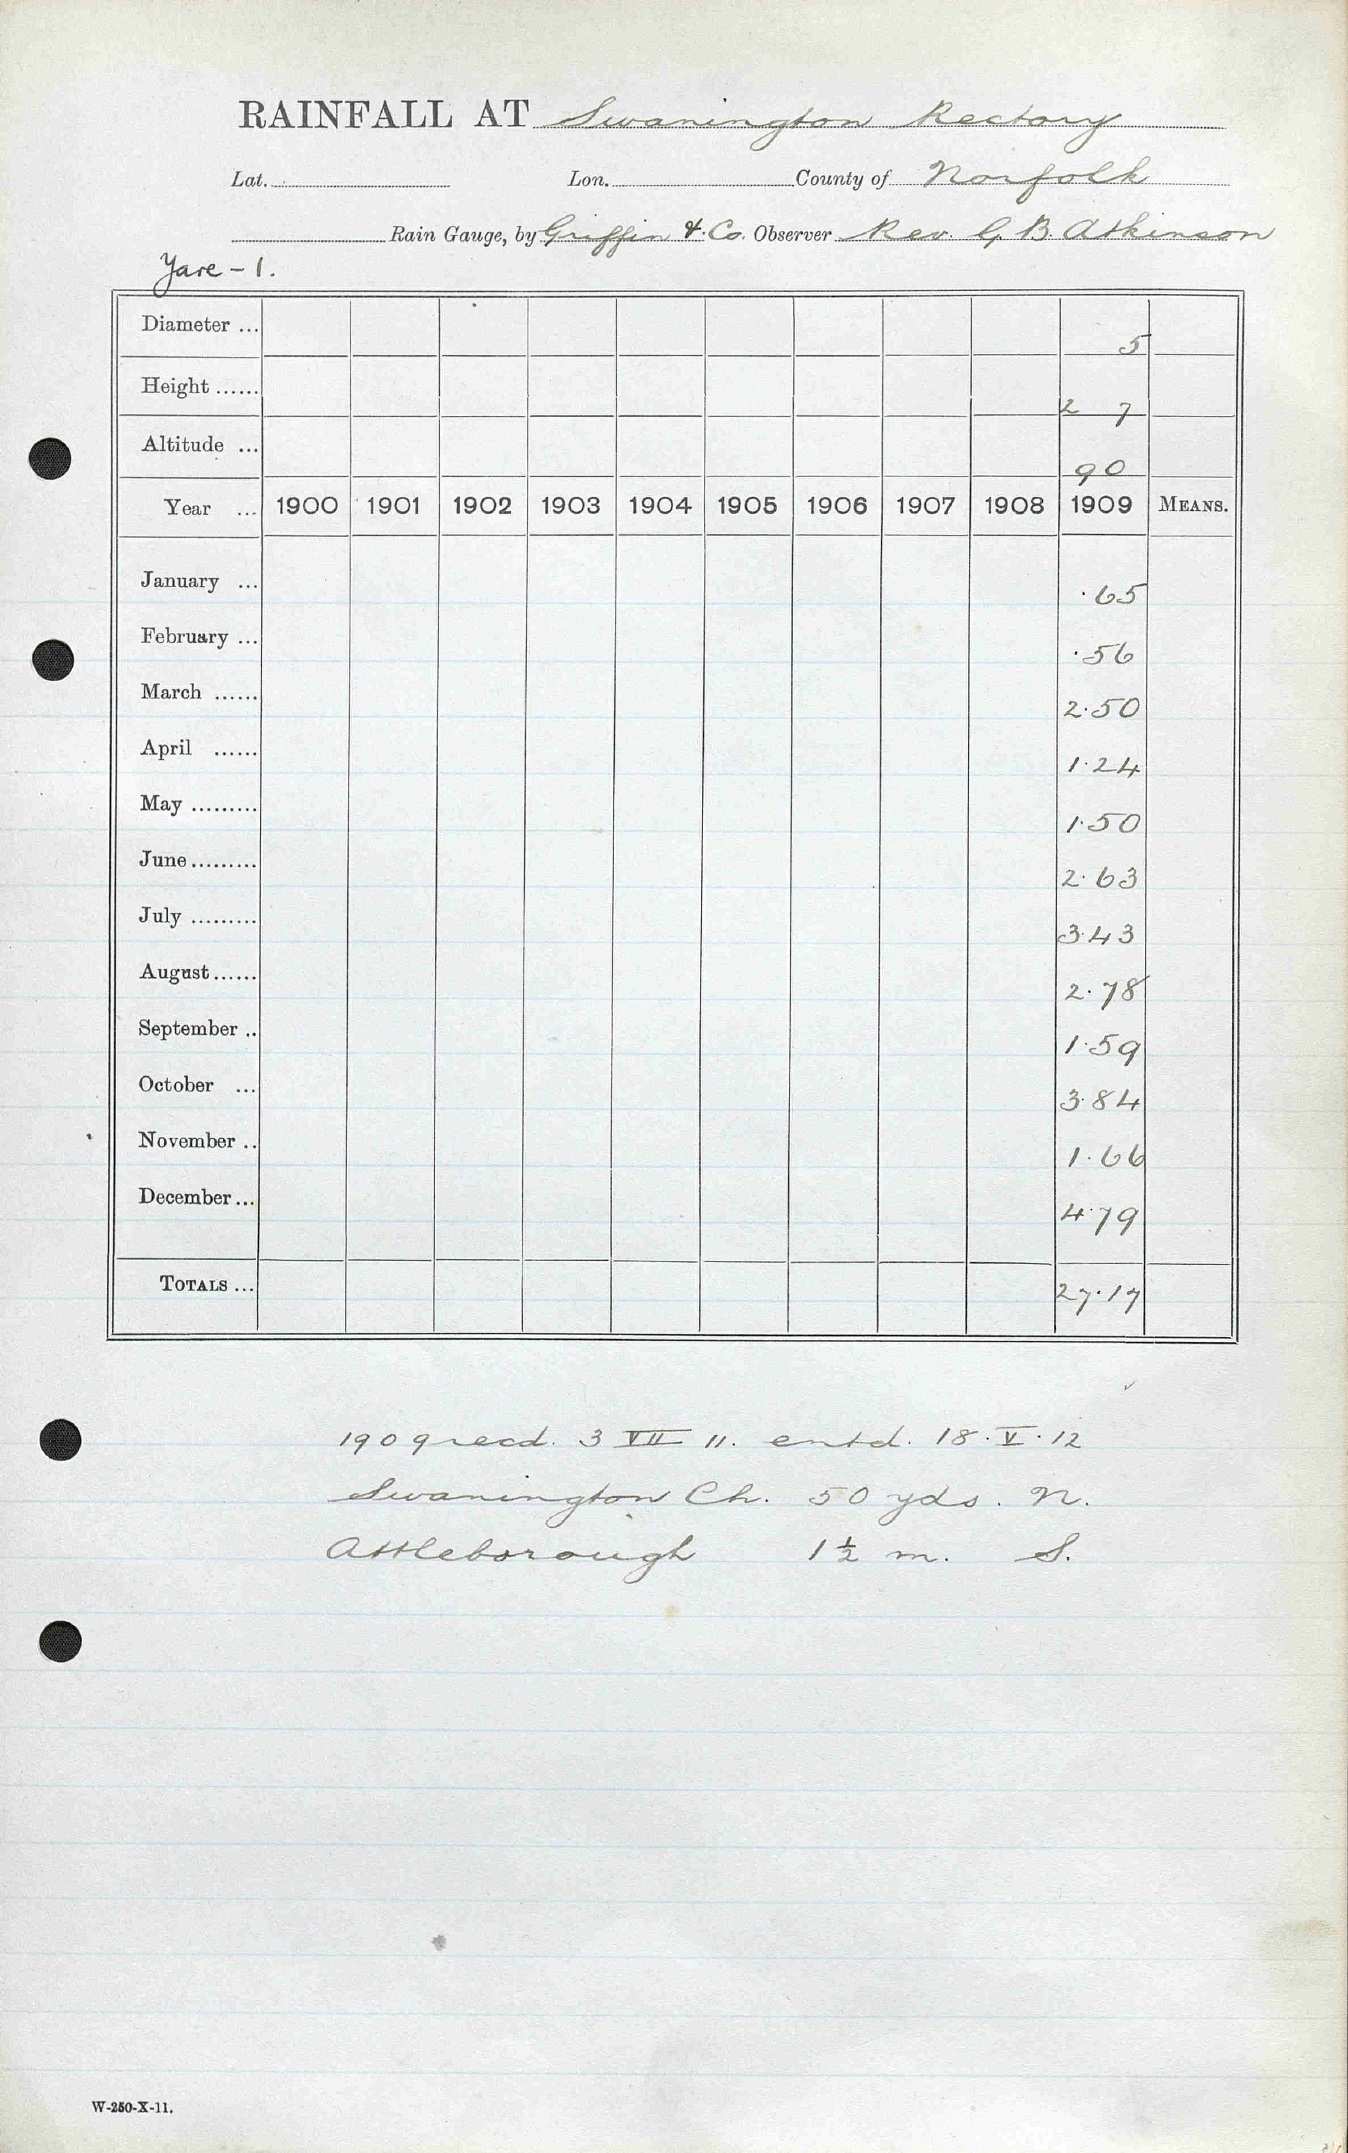 RAINFALL AT Swanington Rectory
Lat. Lon. County of Norfolk
Rain Gauge, by Griffin & Co. Observer Rev. G. B. Atkinson
Yare - 1.
Diameter ... 5
Height ...... 2 7
Altitude ... 90
Year ... 1900 1901 1902 1903 1904 1905 1906 1907 1908 1909 MEANS.
January ... .65
February ... .56
March ...... 2.50
April ...... 1.24
May ......... 1.50
June ......... 2.63
July ......... 3.43
August ...... 2.78
September .. 1.59
October ... 3.84
November .. 1.66
December ... 4.79
TOTALS ... 27.17
1909 recd. 3 VII 11. entd. 18.V.12
Swanington Ch. 50 yds. N.
Attleborough 1½ m. S.
W-250-X-11.